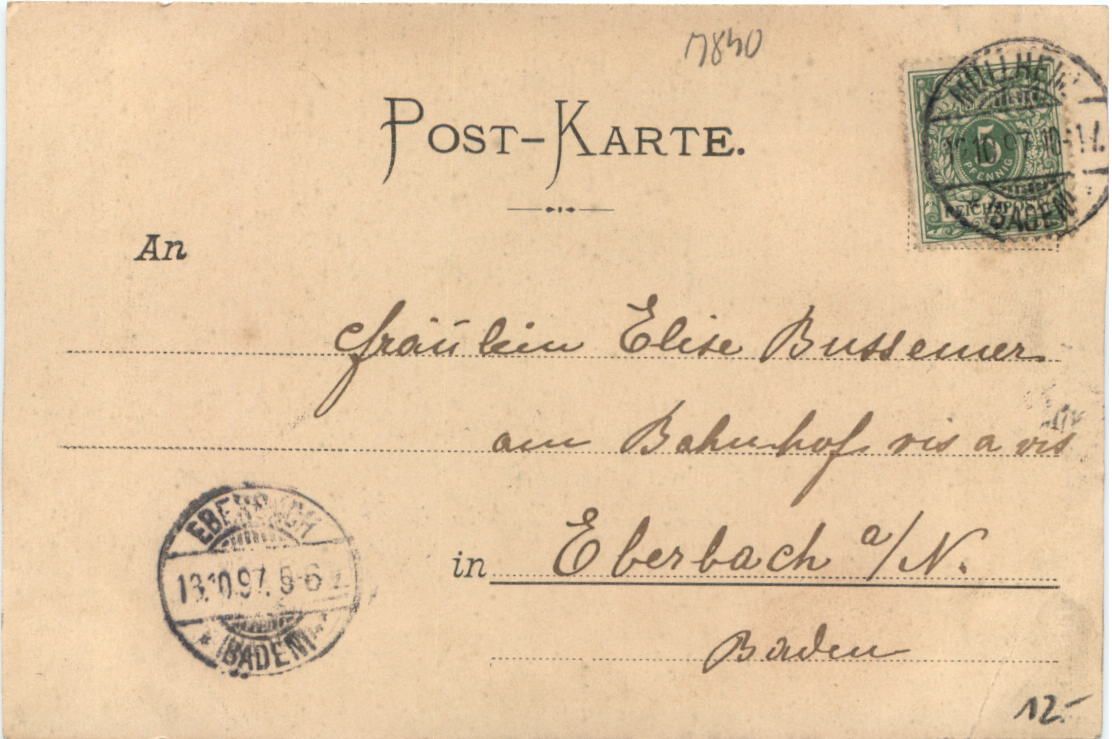 7840
POST-KARTE.
MÜLLHEIM
10-11V.
(BADEN)
5
PFENNIG
REICHSPOST
An
Fräulein Elise Bussemer
am Bahnhof vis a vis
in Eberbach a/N.
Baden
EBERBACH
13.10.97. 5-6
(BADEN)
12.-